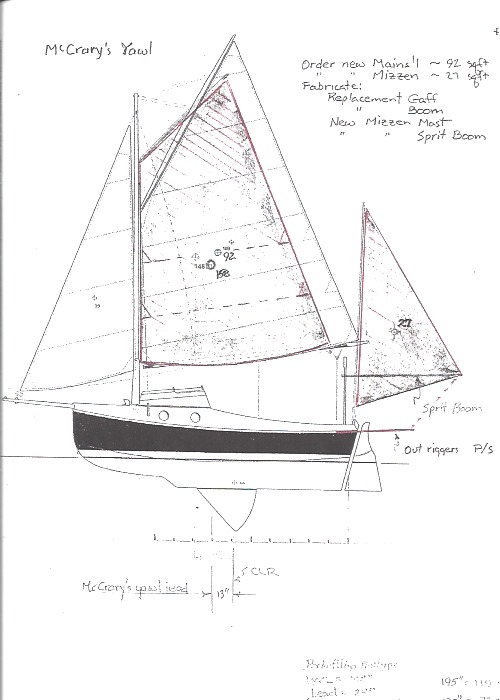 McCrary's Yawl
Order new Mains'l ~ 92 sqft
" " Mizzen ~ 27 sqft
Fabricate:
Replacement Gaff
" Boom
New Mizzen Mast
" " Sprit Boom
92
148
27
Sprit Boom
Out riggers P/S
CLR
McCrary's yawl lead
13"
195"